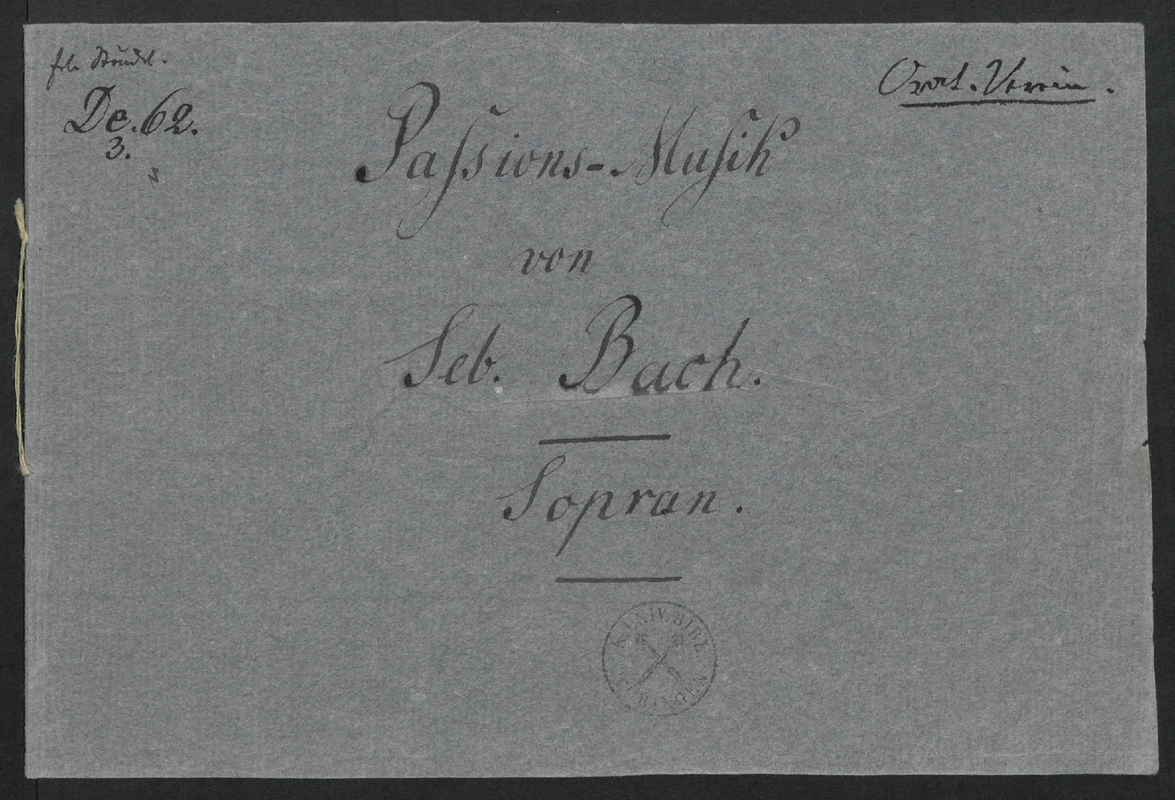 De. 62.
3.
Orat. Verein.
Paſsions-Muſik
von
Seb. Bach.
Sopran.
K. UNIV. BIBL.